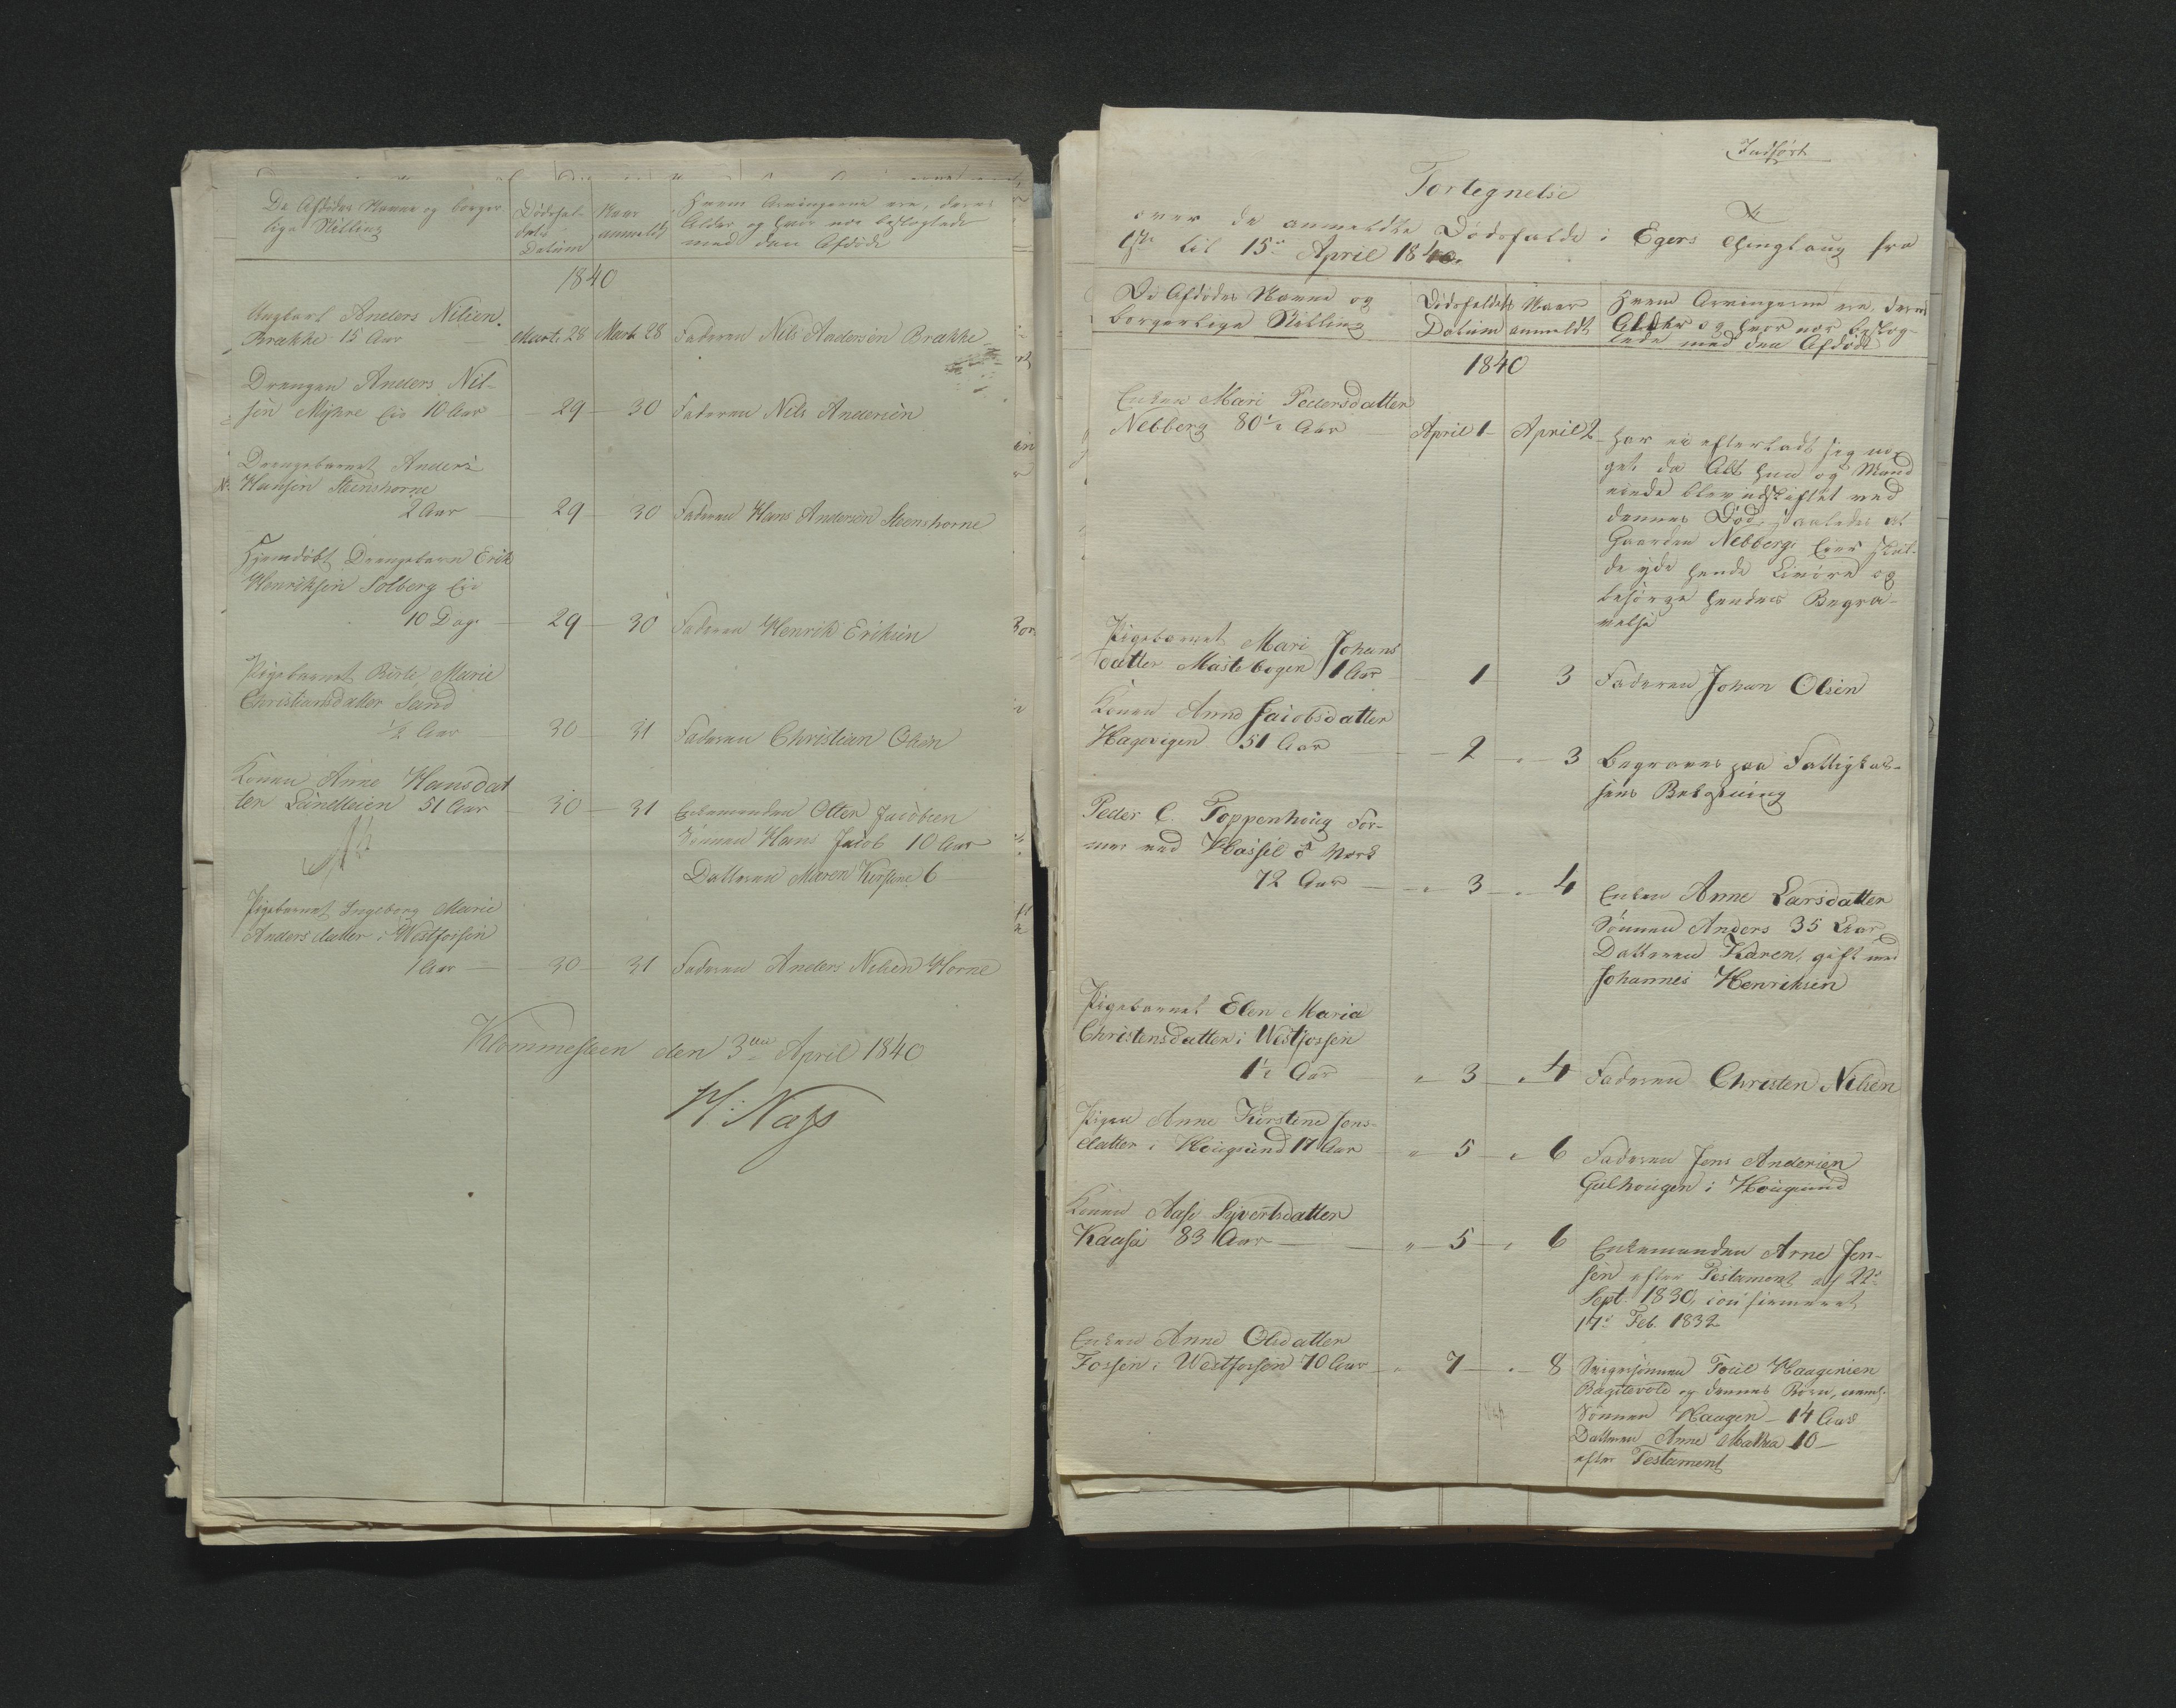 De Afdødes Navne og borger
lige Stilling
Dødsfal-
dets
Datum
Naar
anmeldt
Hvem Arvingerne ere, deres
Alder og hvor nær beslægtede
med den Afdøde
1840
Ungkarl Anders Nilsen
Brække 15 Aar
Marts 28
Marts 28
Faderen Nils Andersen Brække
Drengen Anders Nil-
sen Myhre Eie 10 Aar
29
30
Faderen Nils Andersen
Drengebarnet Anders
Hansen Steenshorne
2 Aar
29
30
Faderen Hans Andersen Steenshorne
Hjemdøbt Drengebarn Erik
Henriksen Solberg Eie
10 Dage
29
30
Faderen Henrik Eriksen
Pigebarnet Birte Marie
Christiansdatter Sand
1/2 Aar
30
31
Faderen Christian Olsen
Konen Anne Hansdat
ter 51 Aar
30
31
Enkemanden Otter Jacobsen
Sønnen Hans Jacob 10 Aar
Datteren Maren Kirstine 6
Pigebarnet Ingeborg Marie
Andersdatter i Westfossen
1 Aar
30
31
Faderen Anders Nilsen Horne
Krommesteen den 3die April 1840
Indført
Fortegnelse
over de anmeldte Dødsfalde i Egers Thinglaug fra
1ste til 15de April 1840.
De Afdødes Navne og
borgerlige Stilling
Dødsfaldets
Datum
Naar
anmeldt
Hvem Arvingerne ere, deres
Alder og hvor nær beslæg-
tede med den Afdøde
1840
Enken Mari Pedersdatter
Nebberg 80 1/2 Aar
April 1
April 2
har ei efterladt sig no-
get, da Alt hun og Mand
eiede blev udskiftet ved
dennes Død, saaledes at
Gaarden Nebbergs Eier skul-
de yde hende Livøre og
besørge hendes Begra-
velse
Pigebarnet Mari Johans
datter Mastebogen 1 Aar
1
3
Faderen Johan Olsen
Konen Anne Jacobsdatter
Hagevigen 51 Aar
2
3
Begraves paa Fattigkas-
sens Bekostning
Peder C. Toppenhoug For-
mer ved Hassel Værk
72 Aar
3
4
Enken Anne Larsdatter
Sønnen Anders 35 Aar
Datteren Karen, gift med
Johannes Henriksen
Pigebarnet Elen Maria
Christensdatter i Westfossen
1 1/2 Aar
3
4
Faderen Christen Nilsen
Pigen Anne Kirstine Jens-
datter i Hougsund 17 Aar
5
6
Faderen Jens Andersen
Gulhougen i Hougsund
Konen Aase Syvertsdatter
Kaasa 83 Aar
5
6
Enkemanden Arne Jen-
sen efter Testament af 22de
Sept. 1830, confirmeret
17de Feb. 1832
Enken Anne Olsdatter
Fossen i Westfossen 70 Aar
7
8
Svigersønnen Truls Haagensen
og dennes Børn, nemlig
Sønnen Haagen 14 Aar
Datteren Anne Mathea 10
efter Testament